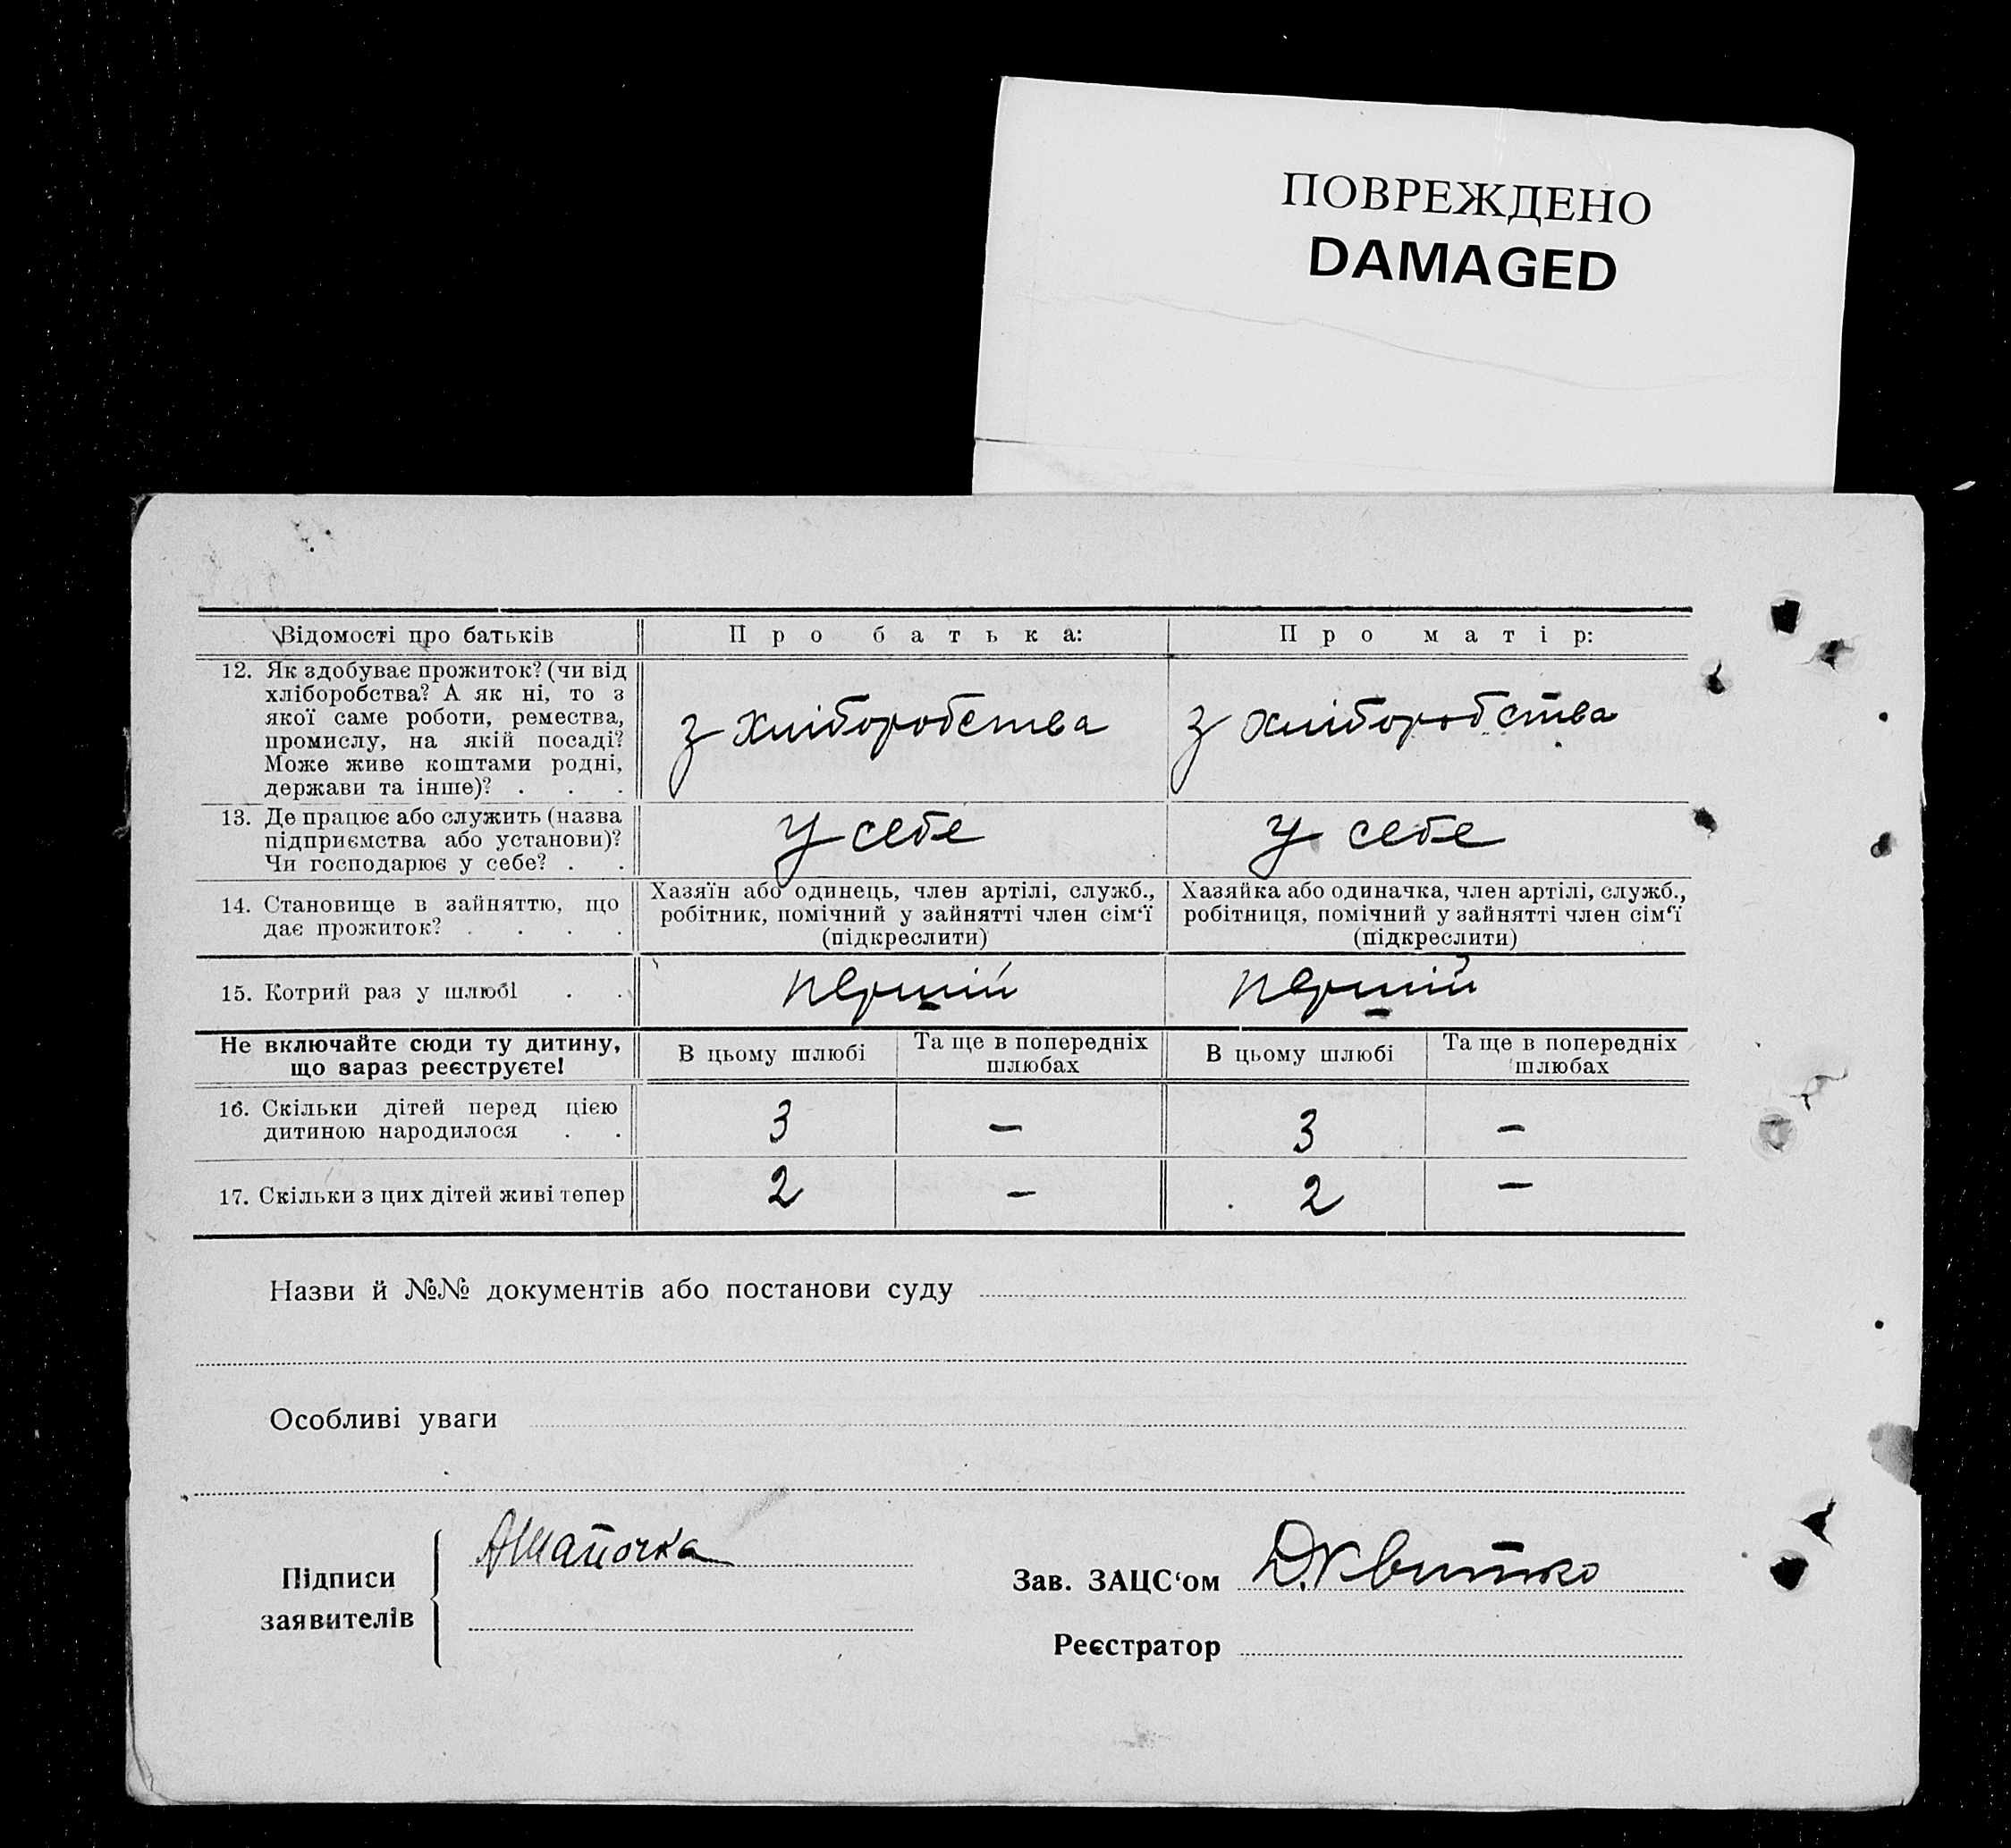 ПОВРЕЖДЕНО
DAMAGED
Відомості про батьків
Про батька:
Про матір:
12. Як здобуває прожиток? (чи від
хліборобства? А як ні, то з
якої саме роботи, ремества,
промислу, на якій посаді?
Може живе коштами родні,
держави та інше)? . . .
з хліборобства
з хліборобства
13. Де працює або служить (назва
підприємства або установи)?
Чи господарює у себе? . .
у себе
у себе
14. Становище в зайняттю, що
дає прожиток? . . . .
Хазяїн або одинець, член артілі, служб.,
робітник, помічний у зайнятті член сім‘ї
(підкреслити)
Хазяйка або одиначка, член артілі, служб.,
робітниця, помічний у зайнятті член сім‘ї
(підкреслити)
15. Котрий раз у шлюбі . .
перший
перший
Не включайте сюди ту дитину,
що зараз реєструєте!
В цьому шлюбі
Та ще в попередніх
шлюбах
В цьому шлюбі
Та ще в попередніх
шлюбах
16. Скільки дітей перед цією
дитиною народилося . .
3
—
3
—
17. Скільки з цих дітей живі тепер
2
—
2
—
Назви й №№ документів або постанови суду
Особливі уваги
Підписи
заявителів
АШапочка
Зав. ЗАЦС‘ом
Д.Квитко
Реєстратор